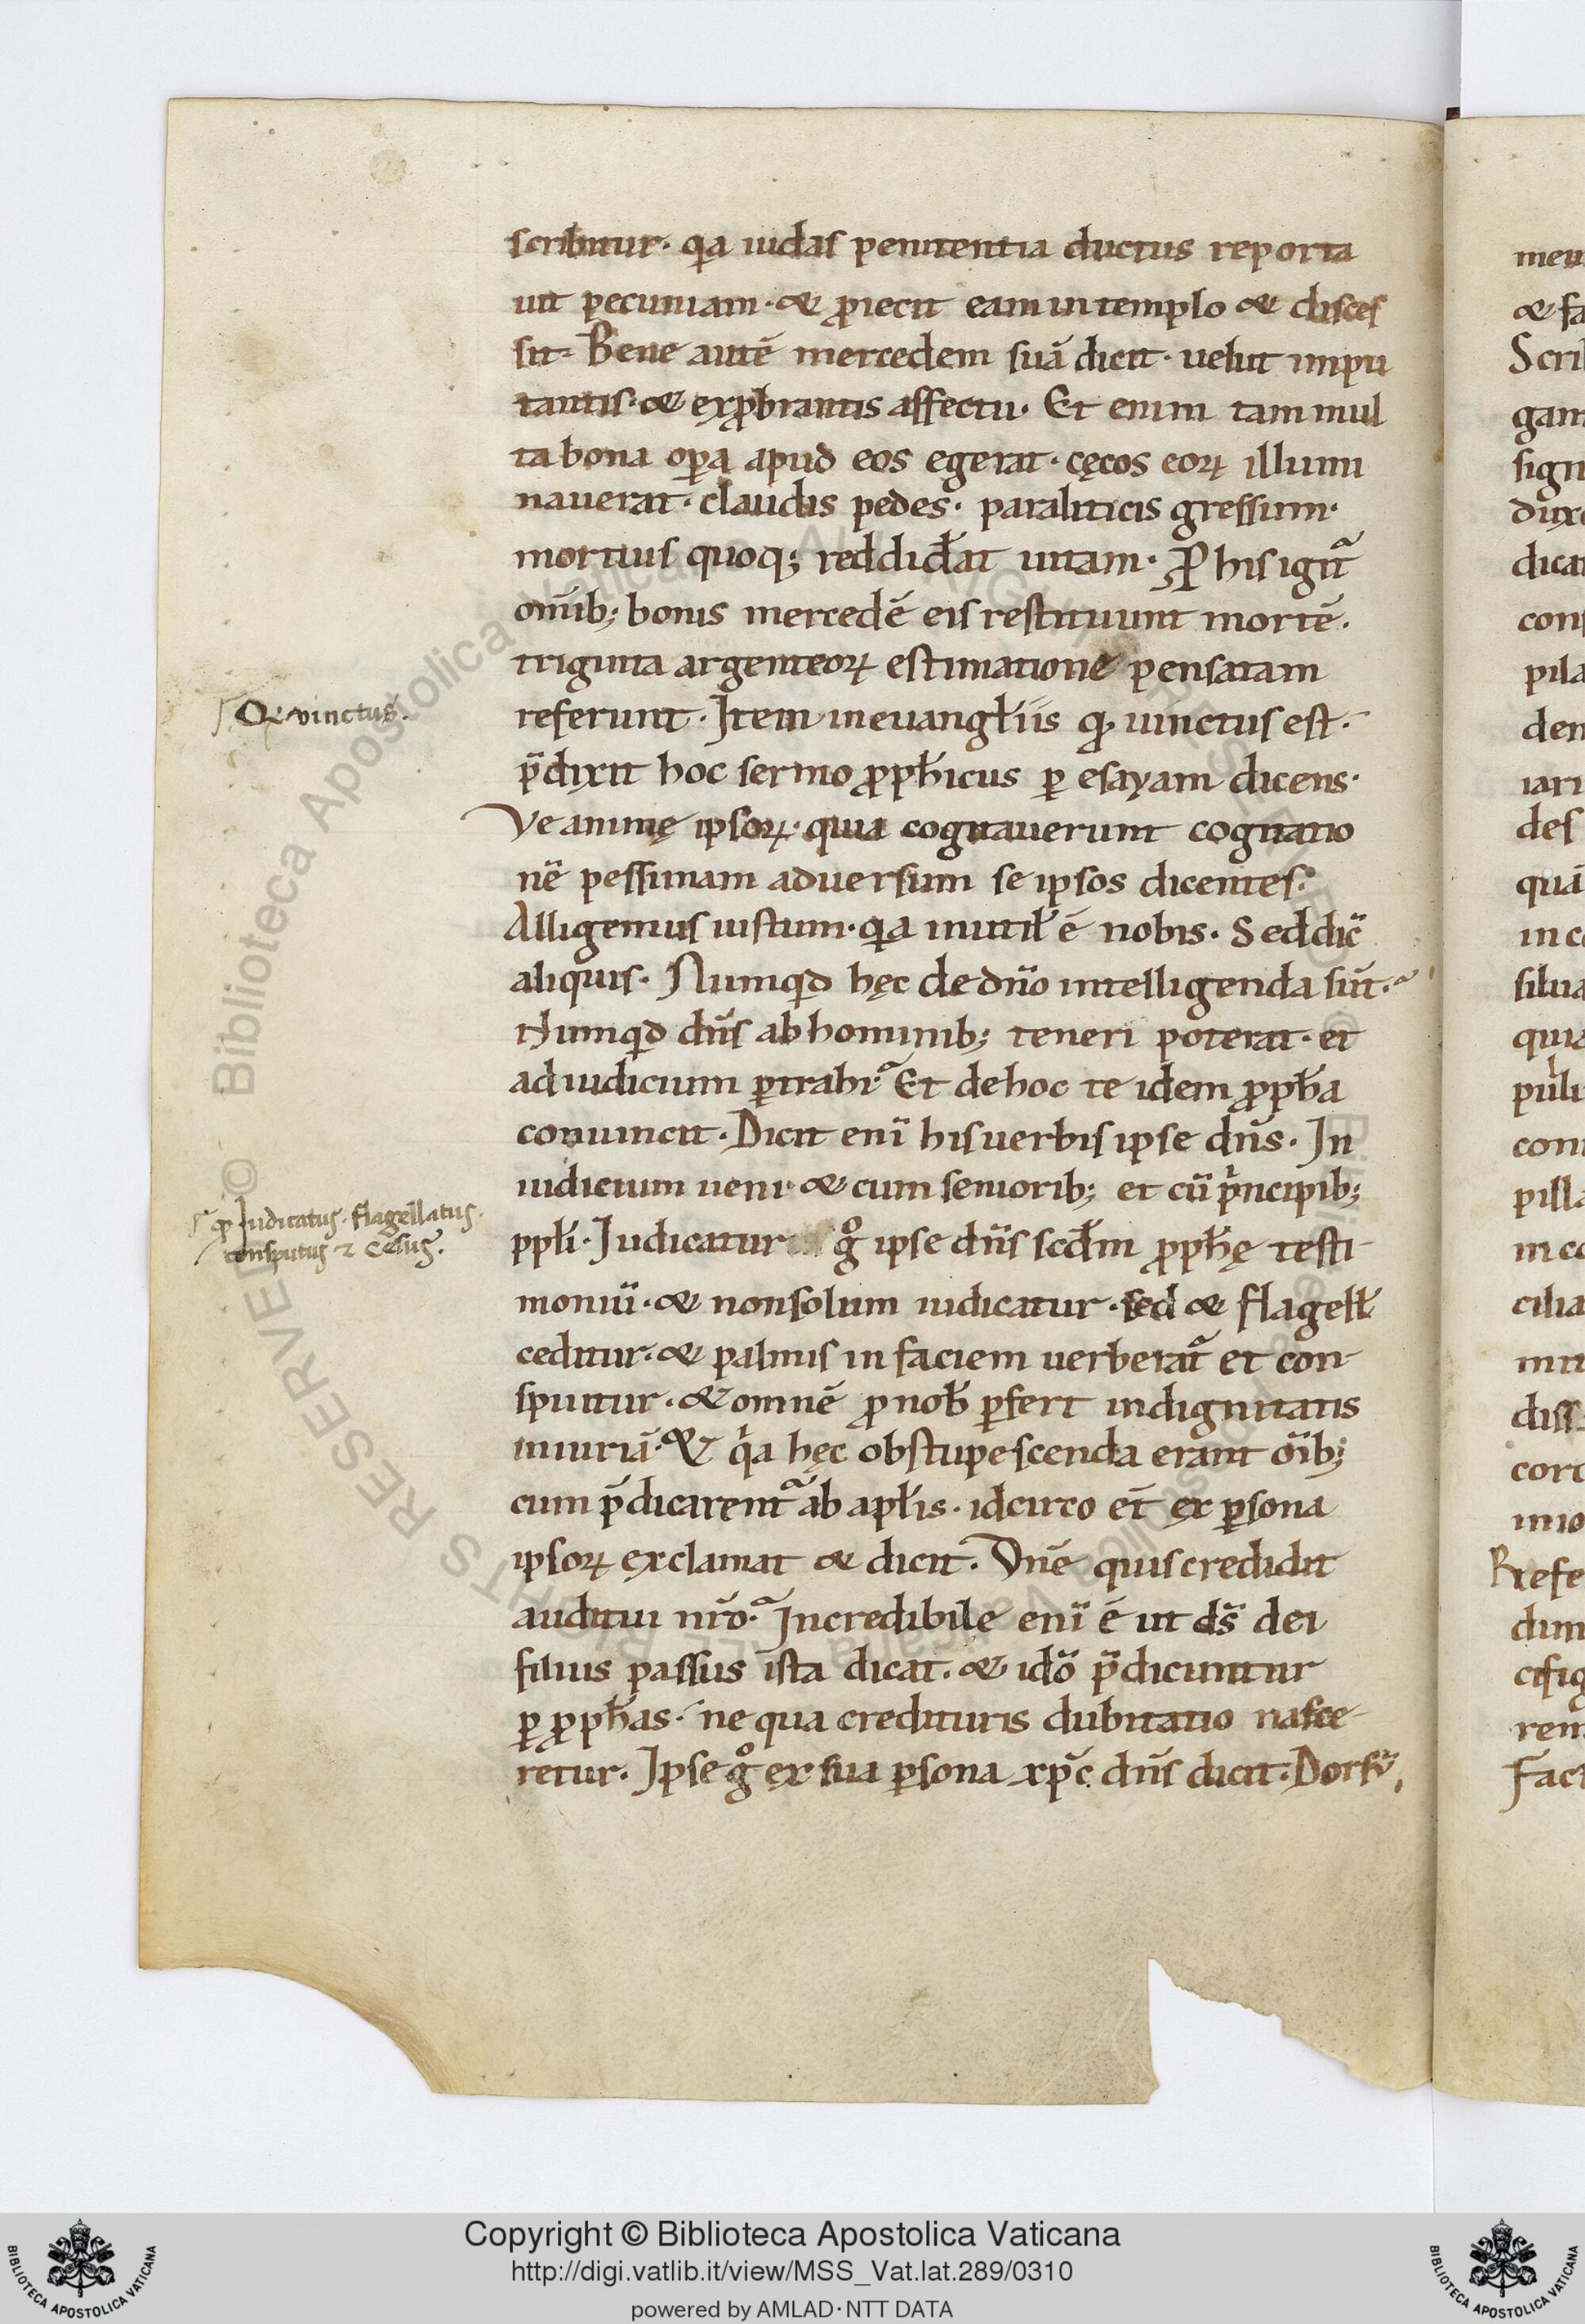 scribitur· qa iudas penitentia ductus reporta
uit pecuniam· & ꝓiecit eam in templo & disces
sit· Bene autē mercedem suā dicit· uelut impu
tantis· & exꝓbrantis affectu· Et enim tam mul
ta bona oꝑa apud eos egerat· cęcos eoꝝ illumi
nauerat· claudis pedes· paraliticis gressum·
mortuis quoq; reddid̄at uitam· Ꝓ his igit᷑
om̄ib; bonis mercedē eis restituunt mortē·
triginta argenteoꝝ estimatione pensatam
referunt· Item in euangl̄iis qꝫ uinctus est·
p̄dixit hoc sermo ꝓph̄icus ꝑ esayam dicens·
Ve animę ipsoꝝ· quia cogitauerunt cogitatio
nē pessimam aduersum se ipsos dicentes·
Alligemus iustum· qa inutil̄ ē nobis· Sed dic̄
aliquis· Numqd hęc de dn̄o intelligenda sūt·
Numqd dn̄s ab hominib; teneri poterat· et
ad iudicium ꝑtrahi· Et de hoc te idem ꝓph̄a
conuincit· Dicit enī his uerbis ipse dn̄s· In
iudicium ueni· & cum seniorib; et cū pͥncipib;
ppl̄i· Iudicatur gͦ ipse dn̄s scd̄m ꝓph̄ę testi
moniū· & non solum iudicatur· sed & flagell̄
ceditur· & palmis in faciem uerberat᷑ et con
spuitur· & omnē ꝓ nob̄ ꝑfert indignitatis
iniuriā· & qͥa hęc obstupescenda erant oīb;
cum p̄dicarent᷑ ab apl̄is· idcirco et̄ ex ꝑsona
ipsoꝝ exclamat & dicit· Dn̄e quis credidit
auditui nr̄o· Incredibile enī ē ut ds̄ dei
filius passus ista dicat· & idō p̄dicuntur
ꝑ ꝓph̄as· ne qua credituris dubitatio nasce
retur· Ipse gͦ ex sua ꝑsona xp̄c dn̄s dicit· Dorsū
Qꝫ vinctus·
qꝫ Iudicatus· flagellatus·
consputus ⁊ cesus·
meu
& fa
Scri
gam
sign
duxe
dica
cons
pila
den
iari
des
quā
in c
silua
quia
pu̍li
con
pilla
in co
cilia
mit
diss
cord
inio
Refe
dum
cifig
rem
Fact
© Biblioteca Apostolica Vaticana
RIGHTS RESERVED
Copyright © Biblioteca Apostolica Vaticana
http://digi.vatlib.it/view/MSS_Vat.lat.289/0310
powered by AMLAD·NTT DATA
BIBLIOTECA APOSTOLICA VATICANA
BIBLIOTECA APOSTOLICA VATICANA